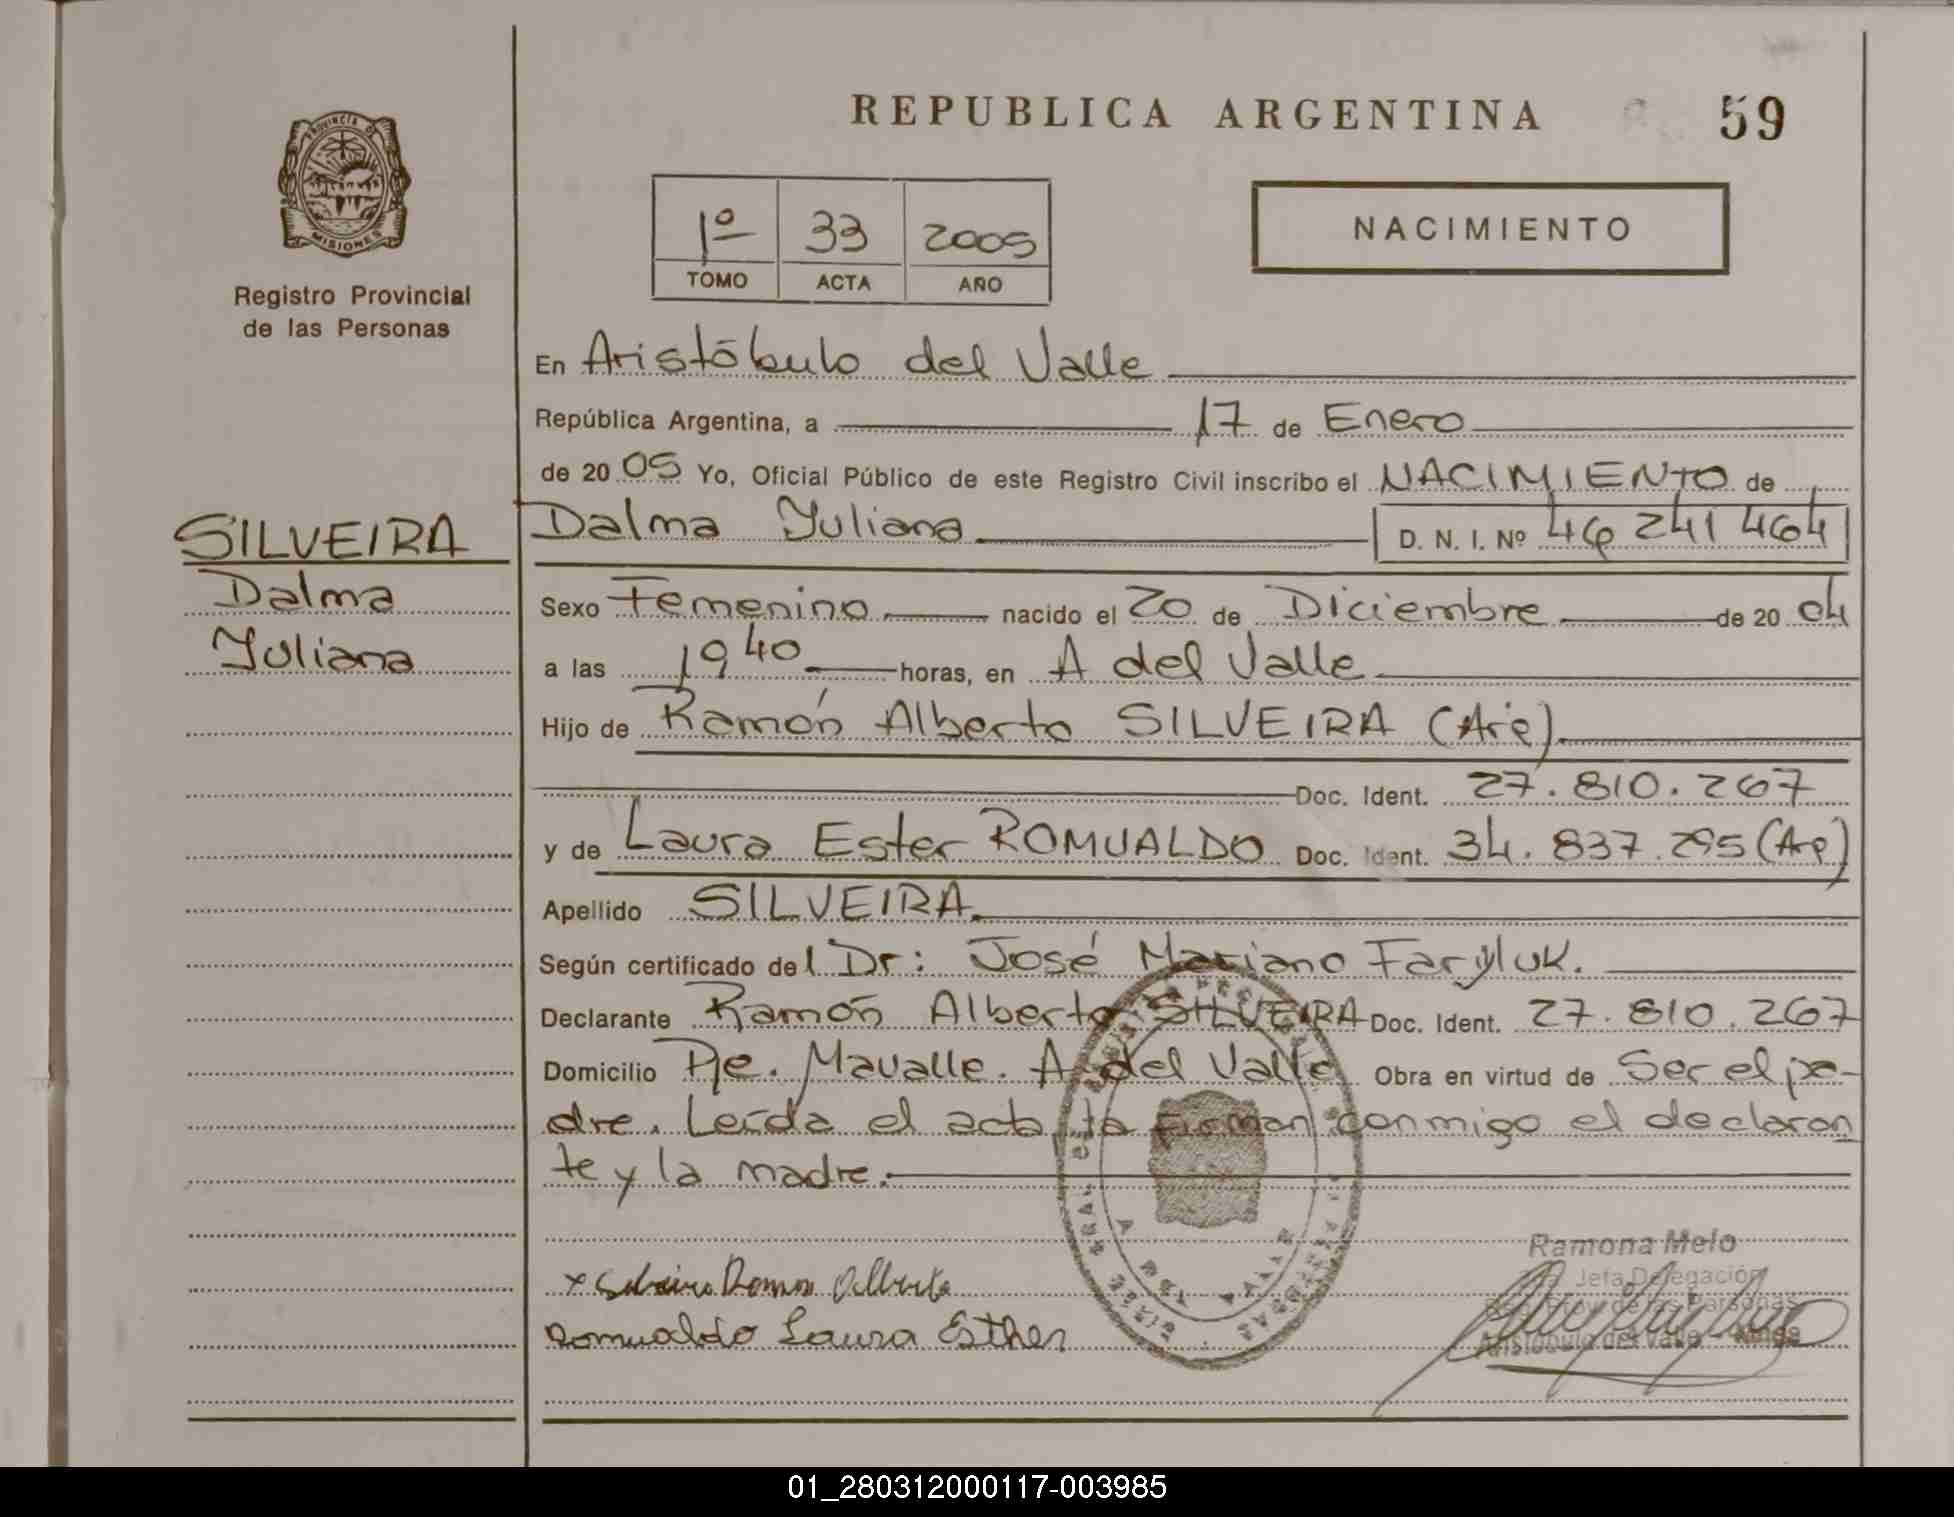 REPUBLICA ARGENTINA
59
PROVINCIA DE
MISIONES
Registro Provincial
de las Personas
1º 33 2005
TOMO ACTA AÑO
NACIMIENTO
En Aristóbulo del Valle
República Argentina, a 17 de Enero
de 20 05 Yo, Oficial Público de este Registro Civil inscribo el NACIMIENTO de
SILVEIRA
Dalma
Yuliana
Dalma Yuliana D. N. I. Nº 46 241 464
Sexo Femenino nacido el 20 de Diciembre de 20 04
a las 19 40 horas, en A del Valle
Hijo de Ramón Alberto SILVEIRA (Arg)
Doc. Ident. 27.810.267
y de Laura Ester ROMUALDO Doc. Ident. 34.837.295 (Arg)
Apellido SILVEIRA
Según certificado del Dr: José Mariano
Declarante Ramón Alberto SILVEIRA Doc. Ident. 27.810.267
Domicilio Pje. Mavalle. A del Valle Obra en virtud de Ser el pa-
dre. Leída el acta la firman conmigo el declaran
te y la madre.
Ramona Melo
Jefa Delegación
Reg. Prov. de las Personas
Aristóbulo del Valle - Mnes
x Silveira Ramon Alberto
Romualdo Laura Esther
A DEL VALLE
01_280312000117-003985